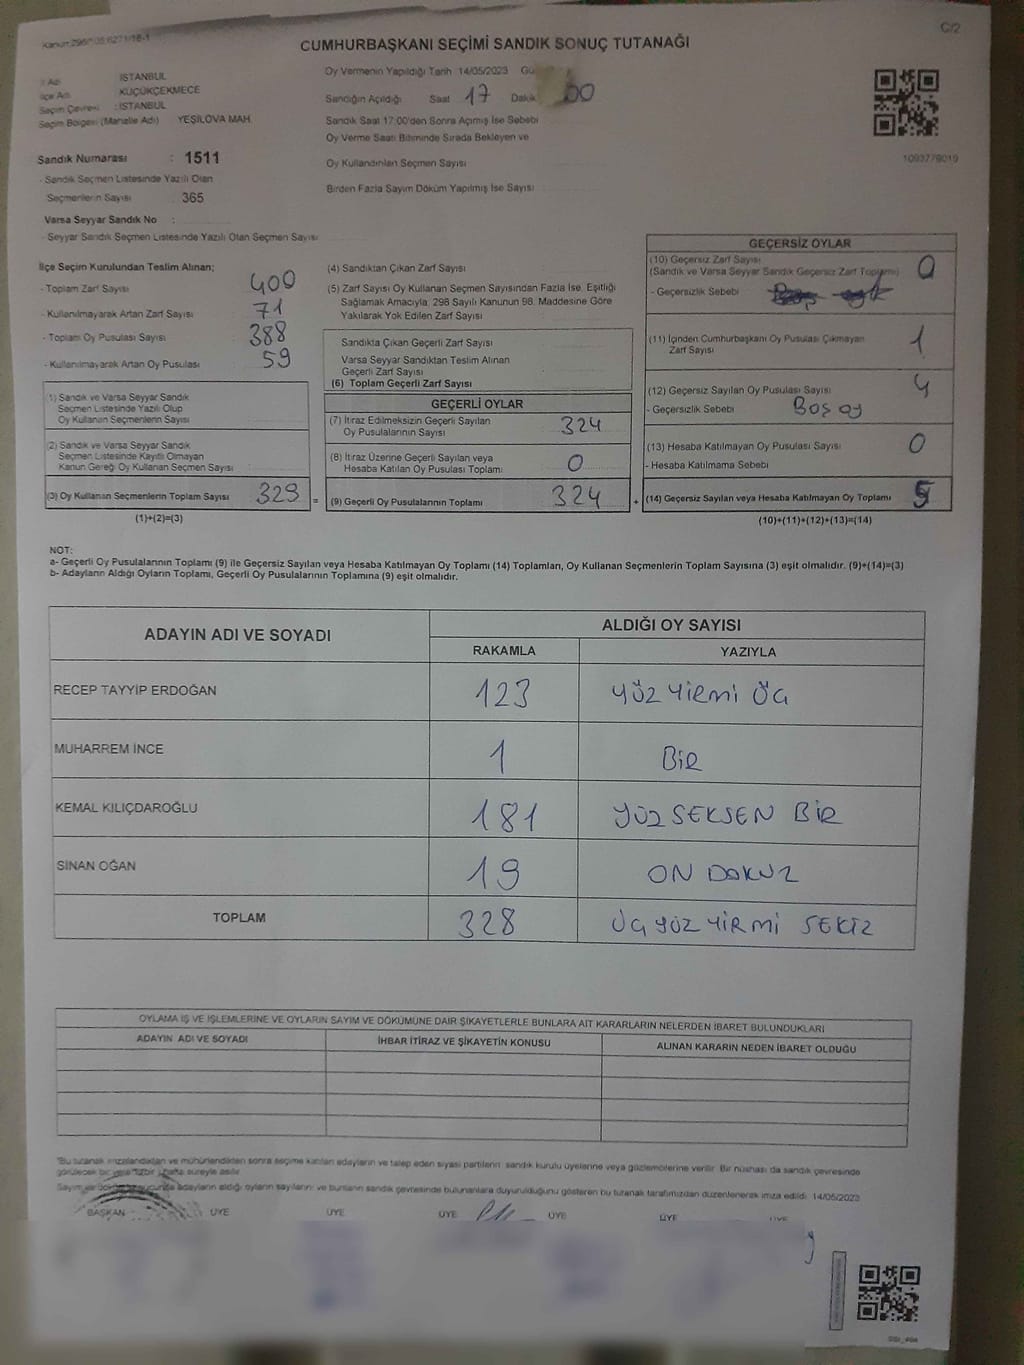 Kanun:298/105 6271/18-1
C/2
CUMHURBAŞKANI SEÇİMİ SANDIK SONUÇ TUTANAĞI
İl Adı : İSTANBUL
İlçe Adı : KÜÇÜKÇEKMECE
Seçim Çevresi : İSTANBUL
Seçim Bölgesi (Mahalle Adı) YEŞİLOVA MAH
Sandık Numarası : 1511
- Sandık Seçmen Listesinde Yazılı Olan
Seçmenlerin Sayısı 365
Varsa Seyyar Sandık No :
- Seyyar Sandık Seçmen Listesinde Yazılı Olan Seçmen Sayısı
Oy Vermenin Yapıldığı Tarih 14/05/2023
Sandığın Açıldığı Saat 17 Dakika 00
Sandık Saat 17:00'den Sonra Açılmış İse Sebebi
Oy Verme Saati Bitiminde Sırada Bekleyen ve
Oy Kullandırılan Seçmen Sayısı
Birden Fazla Sayım Döküm Yapılmış İse Sayısı
1093778019
İlçe Seçim Kurulundan Teslim Alınan;
- Toplam Zarf Sayısı 400
- Kullanılmayarak Artan Zarf Sayısı 71
- Toplam Oy Pusulası Sayısı 388
- Kullanılmayarak Artan Oy Pusulası 59
(1) Sandık ve Varsa Seyyar Sandık
Seçmen Listesinde Yazılı Olup
Oy Kullanan Seçmenlerin Sayısı
(2) Sandık ve Varsa Seyyar Sandık
Seçmen Listesinde Kayıtlı Olmayan
Kanun Gereği Oy Kullanan Seçmen Sayısı
(3) Oy Kullanan Seçmenlerin Toplam Sayısı 329 =
(1)+(2)=(3)
(4) Sandıktan Çıkan Zarf Sayısı
(5) Zarf Sayısı Oy Kullanan Seçmen Sayısından Fazla İse, Eşitliği
Sağlamak Amacıyla, 298 Sayılı Kanunun 98. Maddesine Göre
Yakılarak Yok Edilen Zarf Sayısı
Sandıkta Çıkan Geçerli Zarf Sayısı
Varsa Seyyar Sandıktan Teslim Alınan
Geçerli Zarf Sayısı
(6) Toplam Geçerli Zarf Sayısı
GEÇERLİ OYLAR
(7) İtiraz Edilmeksizin Geçerli Sayılan
Oy Pusulalarının Sayısı 324
(8) İtiraz Üzerine Geçerli Sayılan veya
Hesaba Katılan Oy Pusulası Toplamı 0
(9) Geçerli Oy Pusulalarının Toplamı 324 +
GEÇERSİZ OYLAR
(10) Geçersiz Zarf Sayısı
(Sandık ve Varsa Seyyar Sandık Geçersiz Zarf Toplamı) 0
- Geçersizlik Sebebi
(11) İçinden Cumhurbaşkanı Oy Pusulası Çıkmayan
Zarf Sayısı 1
(12) Geçersiz Sayılan Oy Pusulası Sayısı 4
- Geçersizlik Sebebi Boş oy
(13) Hesaba Katılmayan Oy Pusulası Sayısı 0
- Hesaba Katılmama Sebebi
(14) Geçersiz Sayılan veya Hesaba Katılmayan Oy Toplamı 5
(10)+(11)+(12)+(13)=(14)
NOT:
a- Geçerli Oy Pusulalarının Toplamı (9) ile Geçersiz Sayılan veya Hesaba Katılmayan Oy Toplamı (14) Toplamları, Oy Kullanan Seçmenlerin Toplam Sayısına (3) eşit olmalıdır. (9)+(14)=(3)
b- Adayların Aldığı Oyların Toplamı, Geçerli Oy Pusulalarının Toplamına (9) eşit olmalıdır.
ADAYIN ADI VE SOYADI
ALDIĞI OY SAYISI
RAKAMLA YAZIYLA
RECEP TAYYİP ERDOĞAN 123 YÜZ YİRMİ ÜÇ
MUHARREM İNCE 1 BİR
KEMAL KILIÇDAROĞLU 181 YÜZ SEKSEN BİR
SİNAN OĞAN 19 ON DOKUZ
TOPLAM 328 ÜÇ YÜZ YİRMİ SEKİZ
OYLAMA İŞ VE İŞLEMLERİNE VE OYLARIN SAYIM VE DÖKÜMÜNE DAİR ŞİKAYETLERLE BUNLARA AİT KARARLARIN NELERDEN İBARET BULUNDUKLARI
ADAYIN ADI VE SOYADI İHBAR İTİRAZ VE ŞİKAYETİN KONUSU ALINAN KARARIN NEDEN İBARET OLDUĞU
"Bu tutanak imzalandıktan ve mühürlendikten sonra seçime katılan adayların ve talep eden siyasi partilerin sandık kurulu üyelerine veya gözlemcilerine verilir. Bir nüshası da sandık çevresinde
görülecek bir yere bir hafta süreyle asılır
Sayım ve döküm sonucunda adayların aldığı oyların sayılarını ve bunların sandık çevresinde bulunanlara duyurulduğunu gösteren bu tutanak tarafımızdan düzenlenerek imza edildi. 14/05/2023
BAŞKAN ÜYE ÜYE ÜYE ÜYE ÜYE ÜYE